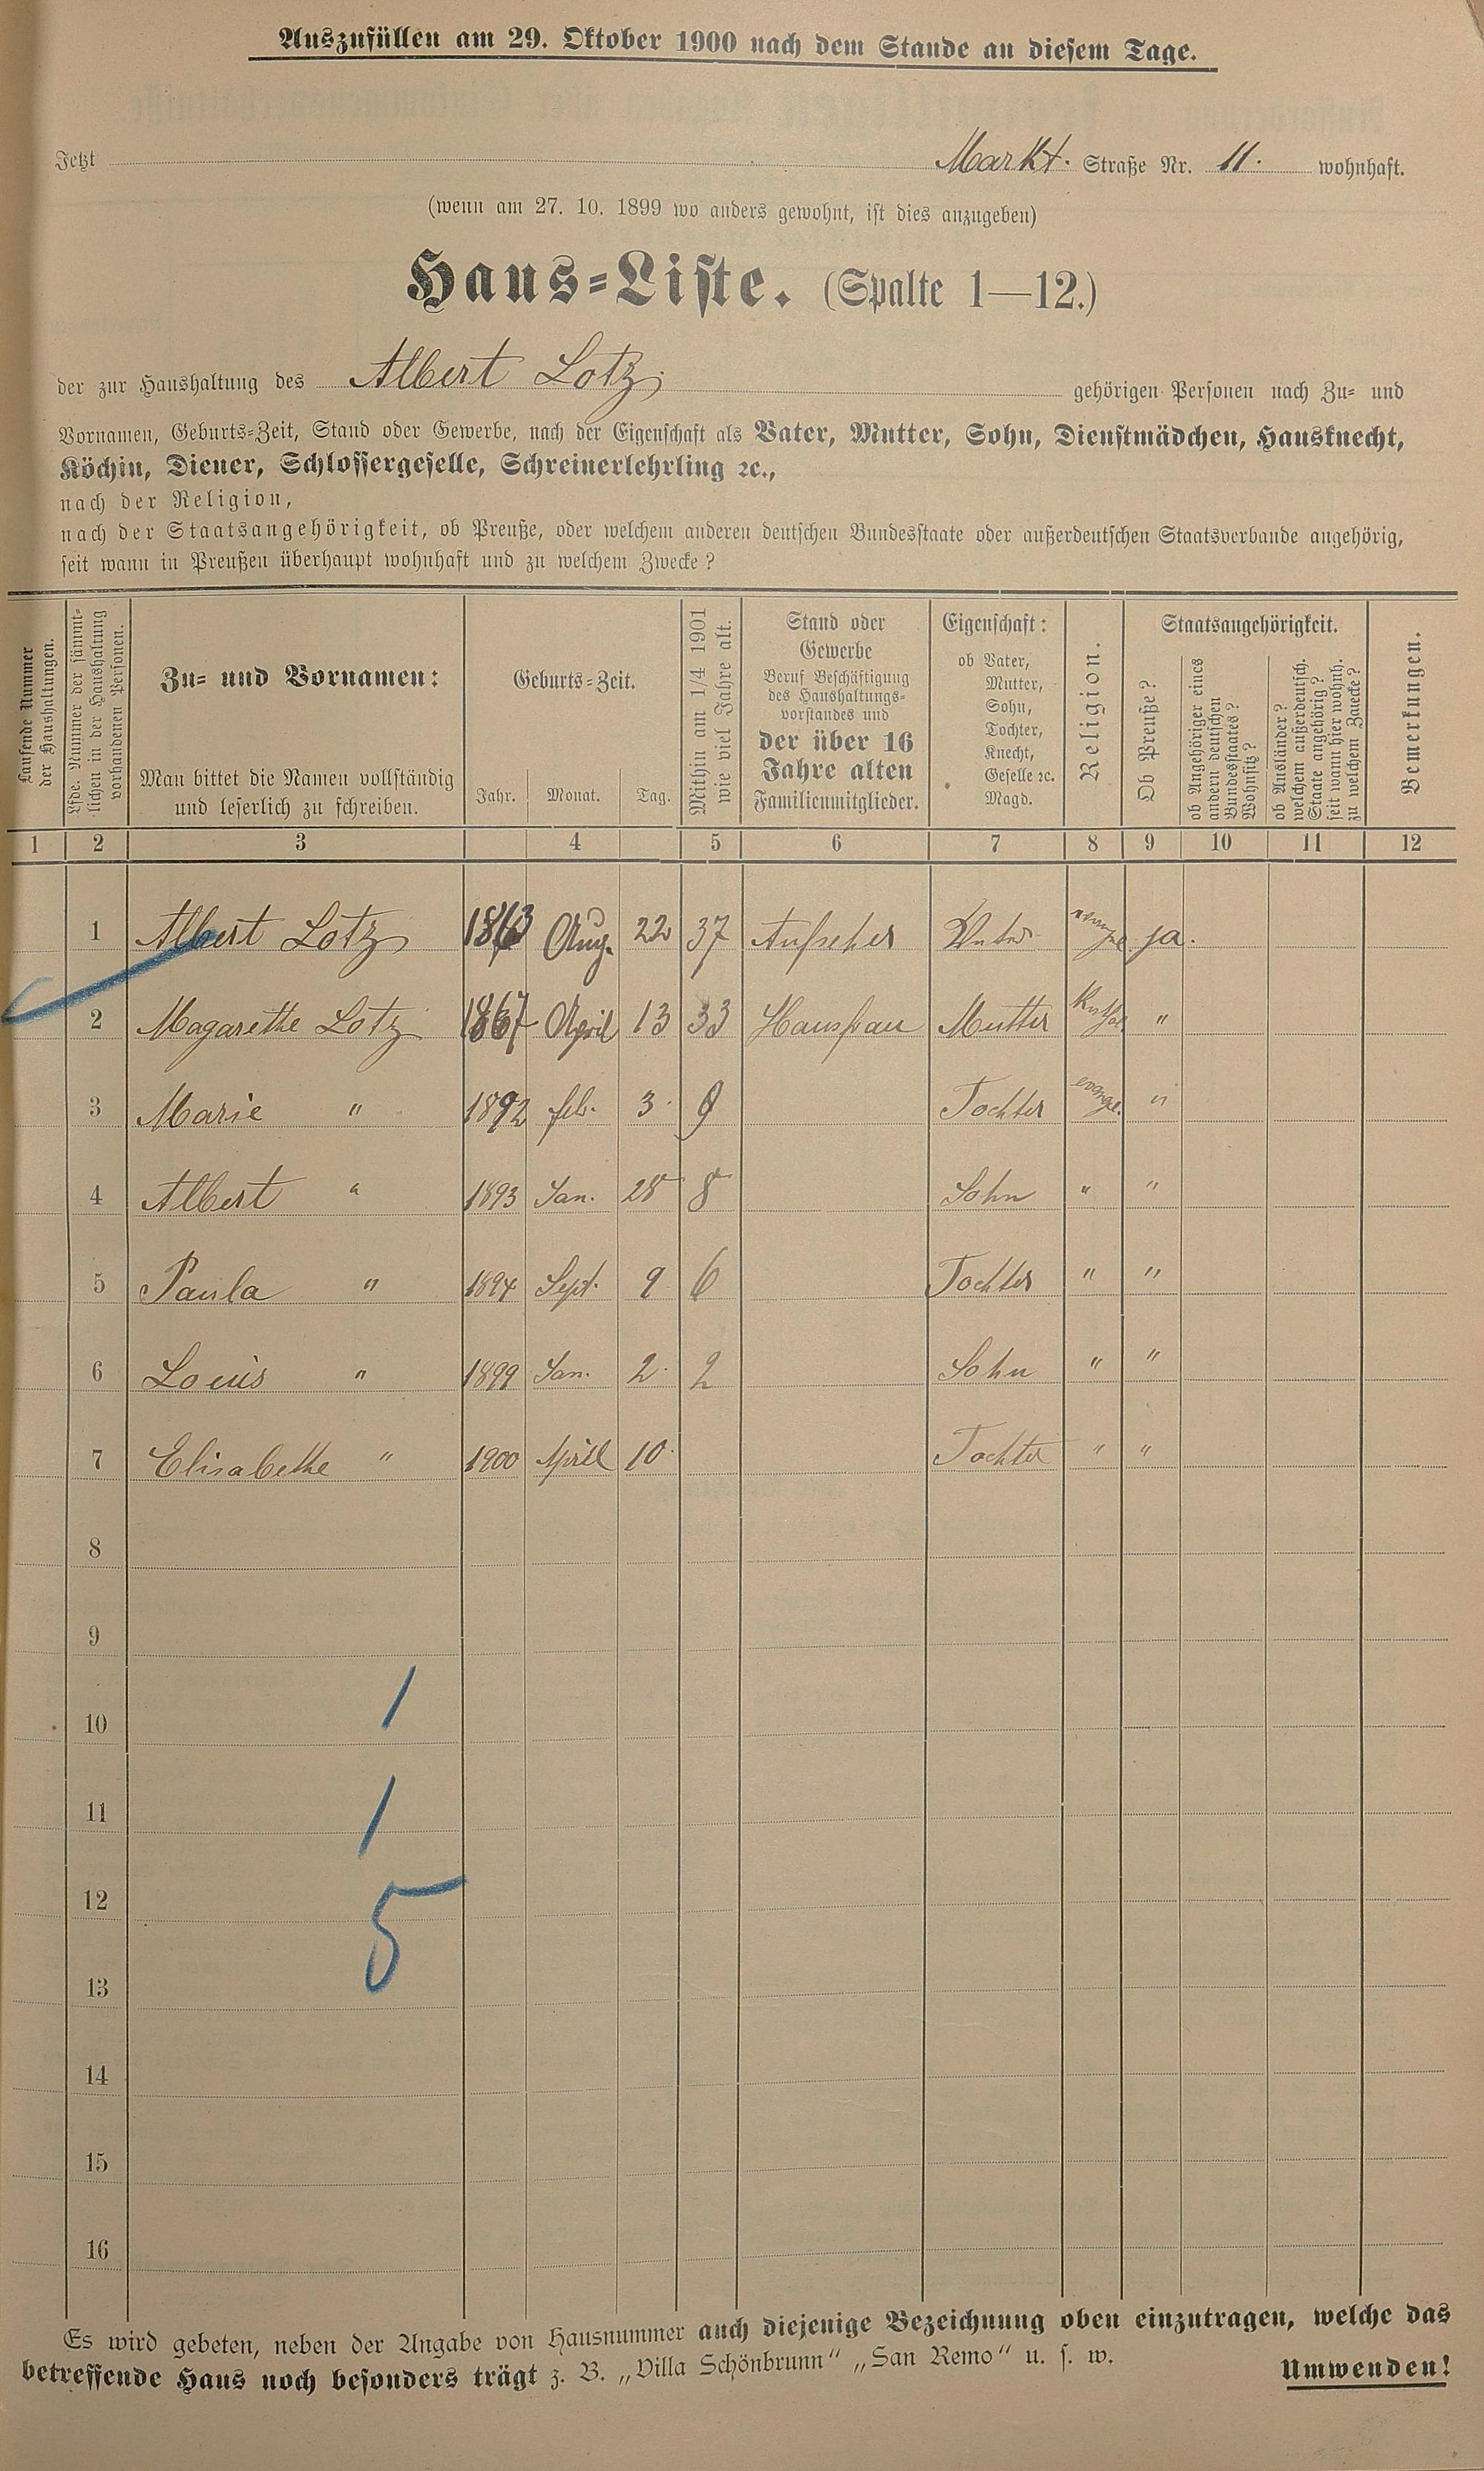 Auszufüllen am 29. Oktober 1900 nach dem Stande an diesem Tage.
Jetzt Markt. Straße Nr. 11. wohnhaft.
(wenn am 27. 10. 1899 wo anders gewohnt, ist dies anzugeben)
Haus-Liste. (Spalte 1—12.)
der zur Haushaltung des Albert Lotz gehörigen Personen nach Zu- und
Vornamen, Geburts-Zeit, Stand oder Gewerbe, nach der Eigenschaft als Vater, Mutter, Sohn, Dienstmädchen, Hausknecht,
Köchin, Diener, Schlossergeselle, Schreinerlehrling ꝛc.,
nach der Religion,
nach der Staatsangehörigkeit, ob Preuße, oder welchem anderen deutschen Bundesstaate oder außerdeutschen Staatsverbande angehörig,
seit wann in Preußen überhaupt wohnhaft und zu welchem Zwecke?
Laufende Nummer
der Haushaltungen.
Lfde. Nummer der sämmt-
lichen in der Haushaltung
vorhandenen Personen.
Zu- und Vornamen:
Man bittet die Namen vollständig
und leserlich zu schreiben.
Geburts-Zeit.
Jahr. Monat. Tag.
Mithin am 1/4 1901
wie viel Jahre alt.
Stand oder
Gewerbe
Beruf Beschäftigung
des Haushaltungs-
vorstandes und
der über 16
Jahre alten
Familienmitglieder.
Eigenschaft:
ob Vater,
Mutter,
Sohn,
Tochter,
Knecht,
Geselle ꝛc.
Magd.
Religion.
Staatsangehörigkeit.
Ob Preuße?
ob Angehöriger eines
andern deutschen
Bundesstaates?
Wohnsitz?
ob Ausländer?
welchem außerdeutsch.
Staate angehörig?
seit wann hier wohnh.
zu welchem Zwecke?
Bemerkungen.
1 2 3 4 5 6 7 8 9 10 11 12
1 Albert Lotz 1863 Aug. 22 37 Aufseher Vater ja.
2 Magarethe Lotz 1867 April 13 33 Hausfrau Mutter Kathol "
3 Marie " 1892 feb. 3 9 Tochter evange. "
4 Albert " 1893 Jan. 28 8 Sohn " "
5 Paula " 1894 Sept. 9 6 Tochter " "
6 Louis " 1899 Jan. 2 2 Sohn " "
7 Elisabethe " 1900 Aprill 10 Tochter " "
8
9
10
1
11
1
12
5
13
14
15
16
Es wird gebeten, neben der Angabe von Hausnummer auch diejenige Bezeichnung oben einzutragen, welche das
betreffende Haus noch besonders trägt z. B. „Villa Schönbrunn" „San Remo" u. s. w.
Umwenden!